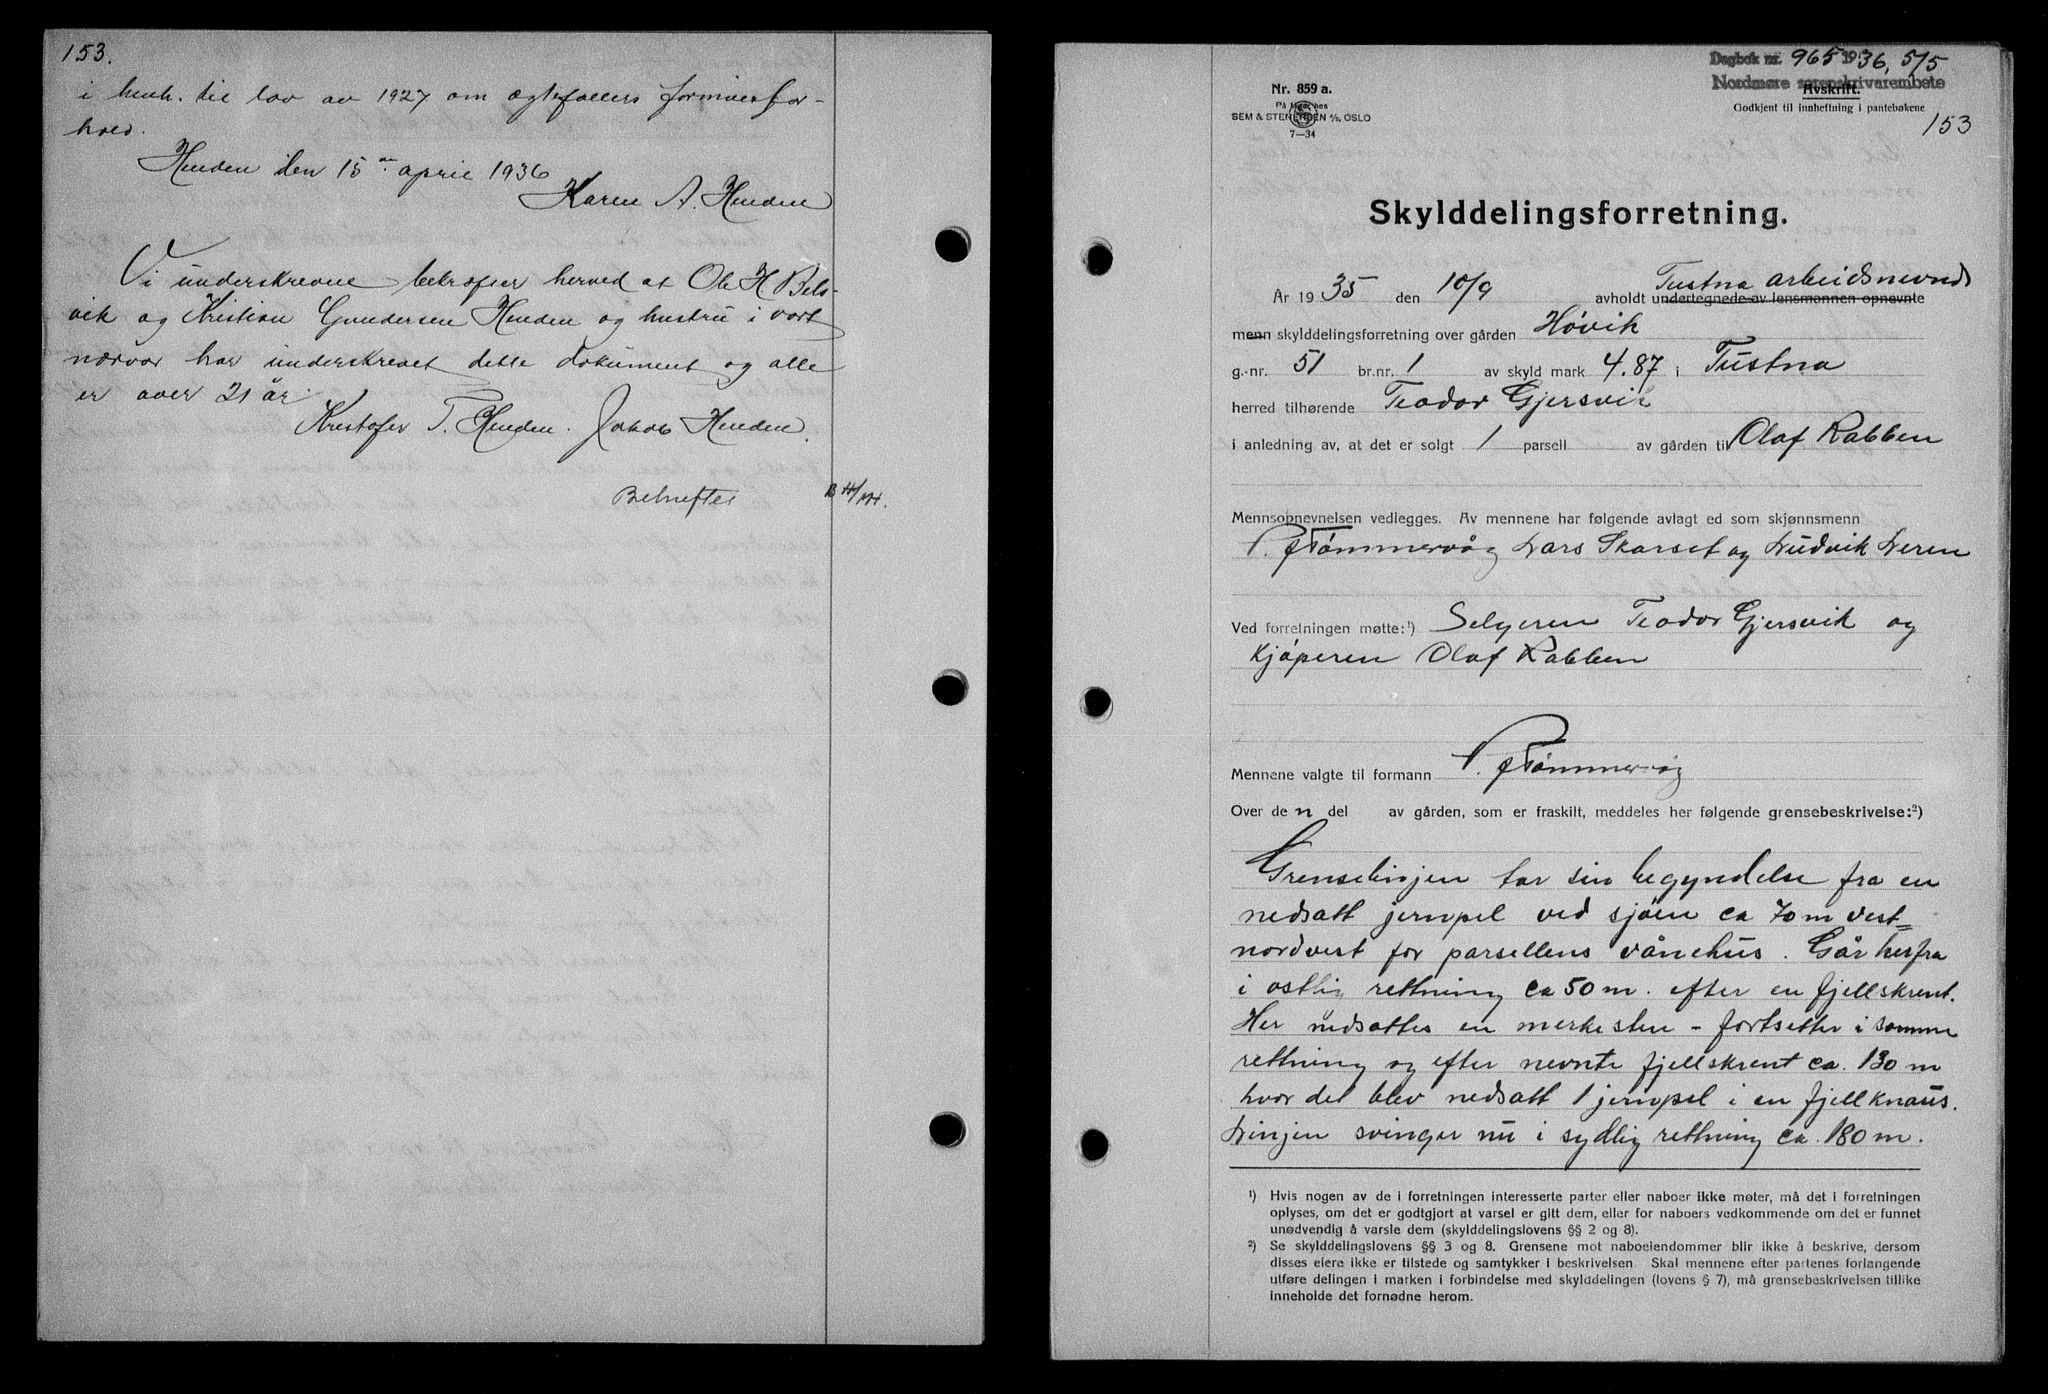 153.
i henh. til lov av 1927 om ægtefællers formuesfor-
hold.
Henden den 15de april 1936
Karen A. Henden
Vi underskrevne bekræfter herved at Ole H Bels-
vik og Kristian Gundersen Henden og hustru i vort
nærvær har underskrevet dette dokument og alle
er over 21 år.
Kristofer T. Henden. Jakob Henden.
Bekreftes
Dagbok nr. 965 1936, 5/5
Nordmøre sorenskriverembete
Nr. 859 a.
På lager hos
SEM & STENERSEN A/S, OSLO
7—34
Avskrift.
Godkjent til innheftning i pantebøkene
153
Skylddelingsforretning.
Tustna arbeidsnevnd
År 1935 den 10/9 avholdt undertegnede av lensmannen opnevnte
menn skylddelingsforretning over gården Høvik
g.-nr. 51 br.nr. 1 av skyld mark 4.87 i Tustna
herred tilhørende Teodor Gjersvik
i anledning av, at det er solgt 1 parsell av gården til Olaf Rabben
Mennsopnevnelsen vedlegges. Av mennene har følgende avlagt ed som skjønnsmenn
P. Tømmervåg Lars Skarset og Ludvik Leren
Ved forretningen møtte:¹) Selgeren Teodor Gjersvik og
kjøperen Olaf Rabben
Mennene valgte til formann P. Tømmervåg
Over den del av gården, som er fraskilt, meddeles her følgende grensebeskrivelse:²)
Grenselinjen tar sin begyndelse fra en
nedsatt jernpel ved sjøen ca 70 m vest-
nordvest for parsellens vånehus. Går herfra
i ostlig rettning ca 50 m. efter en fjellskrent.
Her nedsattes en merkesten - fortsetter i samme
rettning og efter nevnte fjellskrent ca. 130 m
hvor det blev nedsatt 1 jernpel i en fjellknaus.
Linjen svinger nu i sydlig rettning ca. 180 m.
¹) Hvis nogen av de i forretningen interesserte parter eller naboer ikke møter, må det i forretningen
oplyses, om det er godtgjort at varsel er gitt dem, eller for naboers vedkommende om det er funnet
unødvendig å varsle dem (skylddelingslovens §§ 2 og 8).
²) Se skylddelingslovens §§ 3 og 8. Grensene mot naboeiendommer blir ikke å beskrive, dersom
disses eiere ikke er tilstede og samtykker i beskrivelsen. Skal mennene efter partenes forlangende
utføre delingen i marken i forbindelse med skylddelingen (lovens § 7), må grensebeskrivelsen tillike
inneholde det fornødne herom.